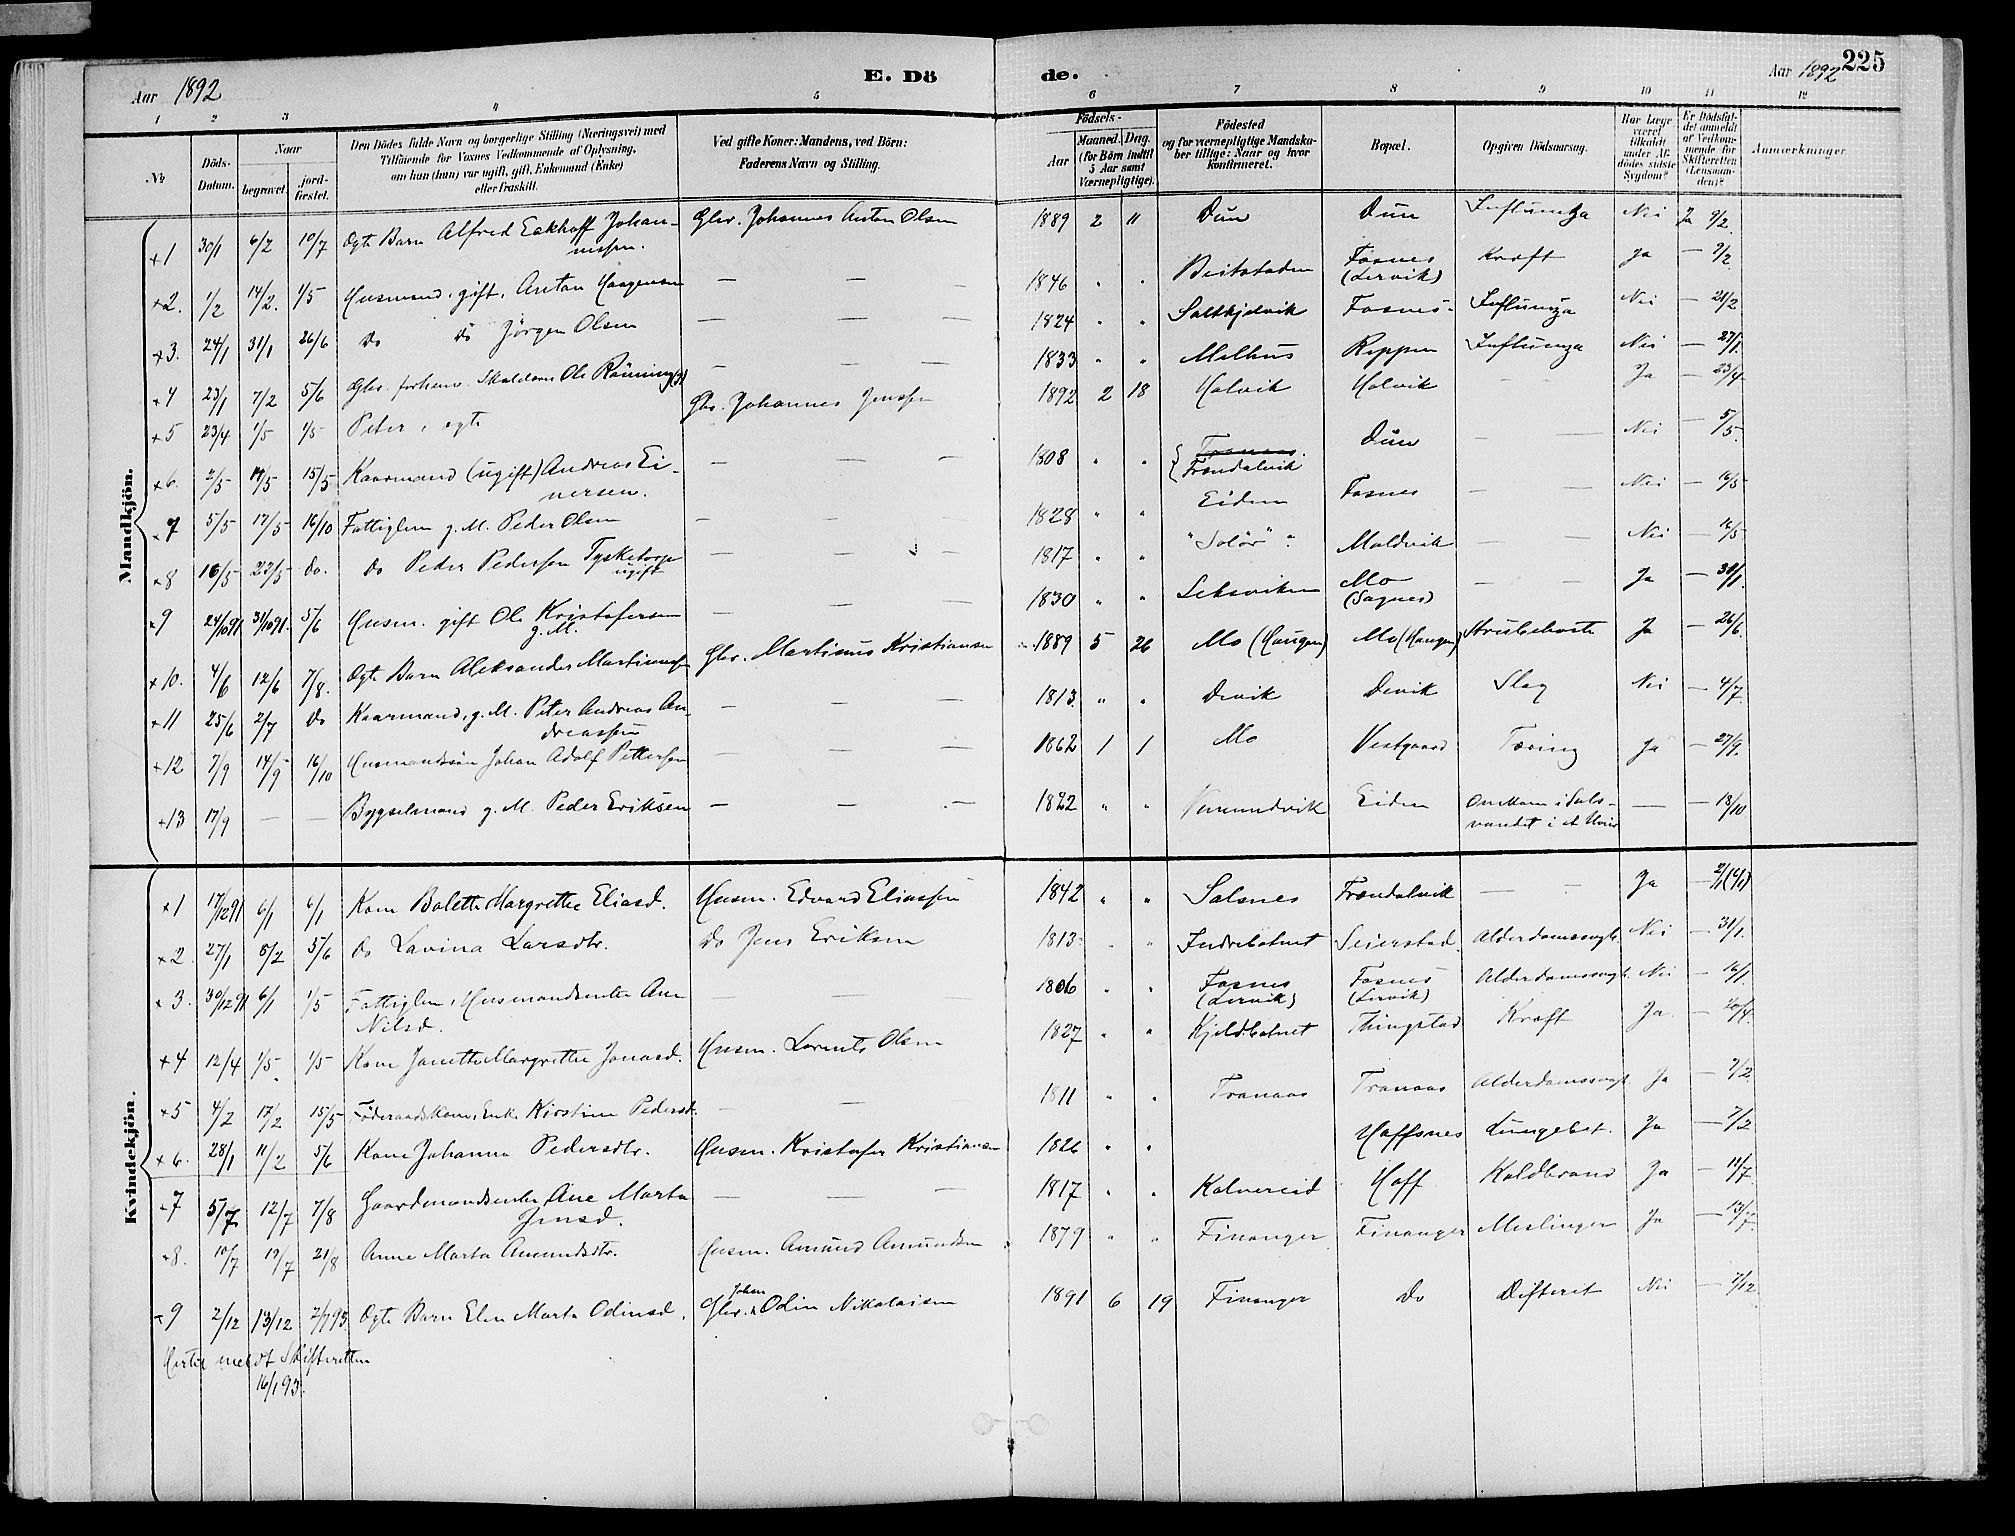 Aar 1892
E. Dö
de.
Aar 1892 225
1 2 3 4 5 6 7 8 9 10 11 12
No
Döds-Datum.
Naar
begravet.
jord-fæstet.
Den Dödes fulde Navn og borgerlige Stilling (Næringsvei) med
Tilföiende for Voxnes Vedkommende af Oplysning,
om han (hun) var ugift, gift, Enkemand (Enke)
eller fraskilt.
Ved gifte Koner: Mandens, ved Börn:
Faderens Navn og Stilling.
Födsels-
Aar
Maaned. Dag.
(for Börn indtil
5 Aar samt
Værnepligtige).
Födested
og for værnepligtige Mandska-
ber tillige: Naar og hvor
konfirmeret.
Bopæl.
Opgiven Dödsaarsag.
Har Læge
været
tilkaldt
under Af-
dödes sidste
Sygdom?
Er Dödsfal-
det anmeldt
af Vedkom-
mende for
Skifteretten
(Lensman-
den)?
Anmærkninger
Mandkjön.
+1 30/1 6/2 10/7 Ægte Barn Alfred Eekhoff Johan- Gbr. Johannes Anton Olsen 1889 2 11 Dun Dun Influenza Nei Ja 9/2
nessen.
+2. 1/2 14/2. 1/5 Husmand, gift, Anton Haagensen — — — 1846 " " Beitstaden Fosnes Kræft Ja — 2/2
(Lervik)
+3. 24/1 31/1 26/6 Do Do Jörgen Olsen — — — 1824 " " Saltkjelvik Fosnes Influenza Nei — 21/2
+4 23/1 7/2 5/6 Gbr. forhenv. Skolelærer Ole Rönning — — 1833 " " Melhus Reppen Influenza Nei — 27/1
+5 23/4 1/5 1/5 Peter, ægte Gbr. Johannes Jenssen 1892 2 18 Halvik Halvik — — Ja — 23/4
+6. 2/5 14/5 15/5 Kaarmand (ugift) Andreas Ei- — — — 1808 " " Tranaas. Dun — — Nei — 5/5.
nersen. Frændalvik
+7 5/5 17/5 16/10 Fattiglem g. M. Peder Olsen — — — 1828 " " Eiden Fosnes — — Nei — 16/5
+8 16/5 22/5 do. do Peder Pedersen Tysketorp — — — 1817 " " "Solör" Moldvik — — Nei — 16/5
ugift
+9 24/1091 31/1091. 5/6 Husm. gift Ole Kristofersen — — — 1830 " " Leksviken Mo — — Ja — 31/1
g. M. (Sagnes)
+10. 4/6 12/6 7/8. Ægte Barn Aleksander Martinussen Gbr. Martinus Kristiansen 1889 5 26 Mo (Haugen) Mo (Haugen) Strubehoste Ja — 26/6
+11 25/6 2/7 Do Kaarmand, g. M. Peter Andreas An- — — — 1813 " " Devik Devik Slag Nei — 4/7
dreassen
+12 7/9 14/9 16/10 Husmandssön Johan Adolf Pettersen — — — 1862 1 1 Mo Vestgaard Tæring Ja — 27/9.
+13 17/9 — — Bygselmand g. M. Peder Eriksen — — — 1822 " " Vemundvik Eiden Omkom i Sals- — — 18/10
vandet i et Uveir
Kvindekjön.
+1 17/1291 6/1 6/1 Kone Bolette Margrethe Eliasd. Husm. Edvard Eliassen 1842 " " Salsnes Frændalvik — — Ja — 2/1
+2 27/1 8/2 5/6 do Lavina Larsdtr. do Jens Eriksen 1813 " " Indrebotnet Seierstad Alderdomssvagh. Nei — 31/1.
+3. 30/1291 6/1 1/5 Fattiglem, Husmandsenke Ane — — 1806 " " Fosnes Fosnes Alderdomssvagh. Nei — 16/1.
Nilsd. (Lervik) (Lervik)
+4 12/4 1/5 1/5 Kone Janette Margrethe Jonasd. Husm. Lorents Olsen 1827 " " Kjeldbotnet Thingstad Kræft Ja. — 20/4.
+5 4/2 17/2 15/5 Föderaadskone, Enke Kirstine Pedersd. — — 1811 " " Tranaas Tranaas Alderdomssvagh. Ja — 7/2
+6. 28/1 11/2 5/6 Kone Johanna Pedersdtr. Husm. Kristofer Kristiansen 1826 " " Hoffsnes Lungebet. Ja — 7/2
+7 5/7 12/7 7/8 Gaardmandsenke Ane Marta — — — 1817 " " Kalvereid Hoff Koldbrand Ja — 11/7
Jensd.
+8. 10/7 19/7 21/8 Anne Marta Amundsdtr. Husm. Amund Amundsen 1879 " " Finanger Finanger Meslinger Ja — 13/7
+9 2/12 13/12 2/193. Ægte Barn Elen Marta Odinsd. Gbr. Johan Odin Nikolaisen 1891 6 19 Finanger Do Difterit Nei — 7/12
Hertil meldt Skifteretten
16/1 93.